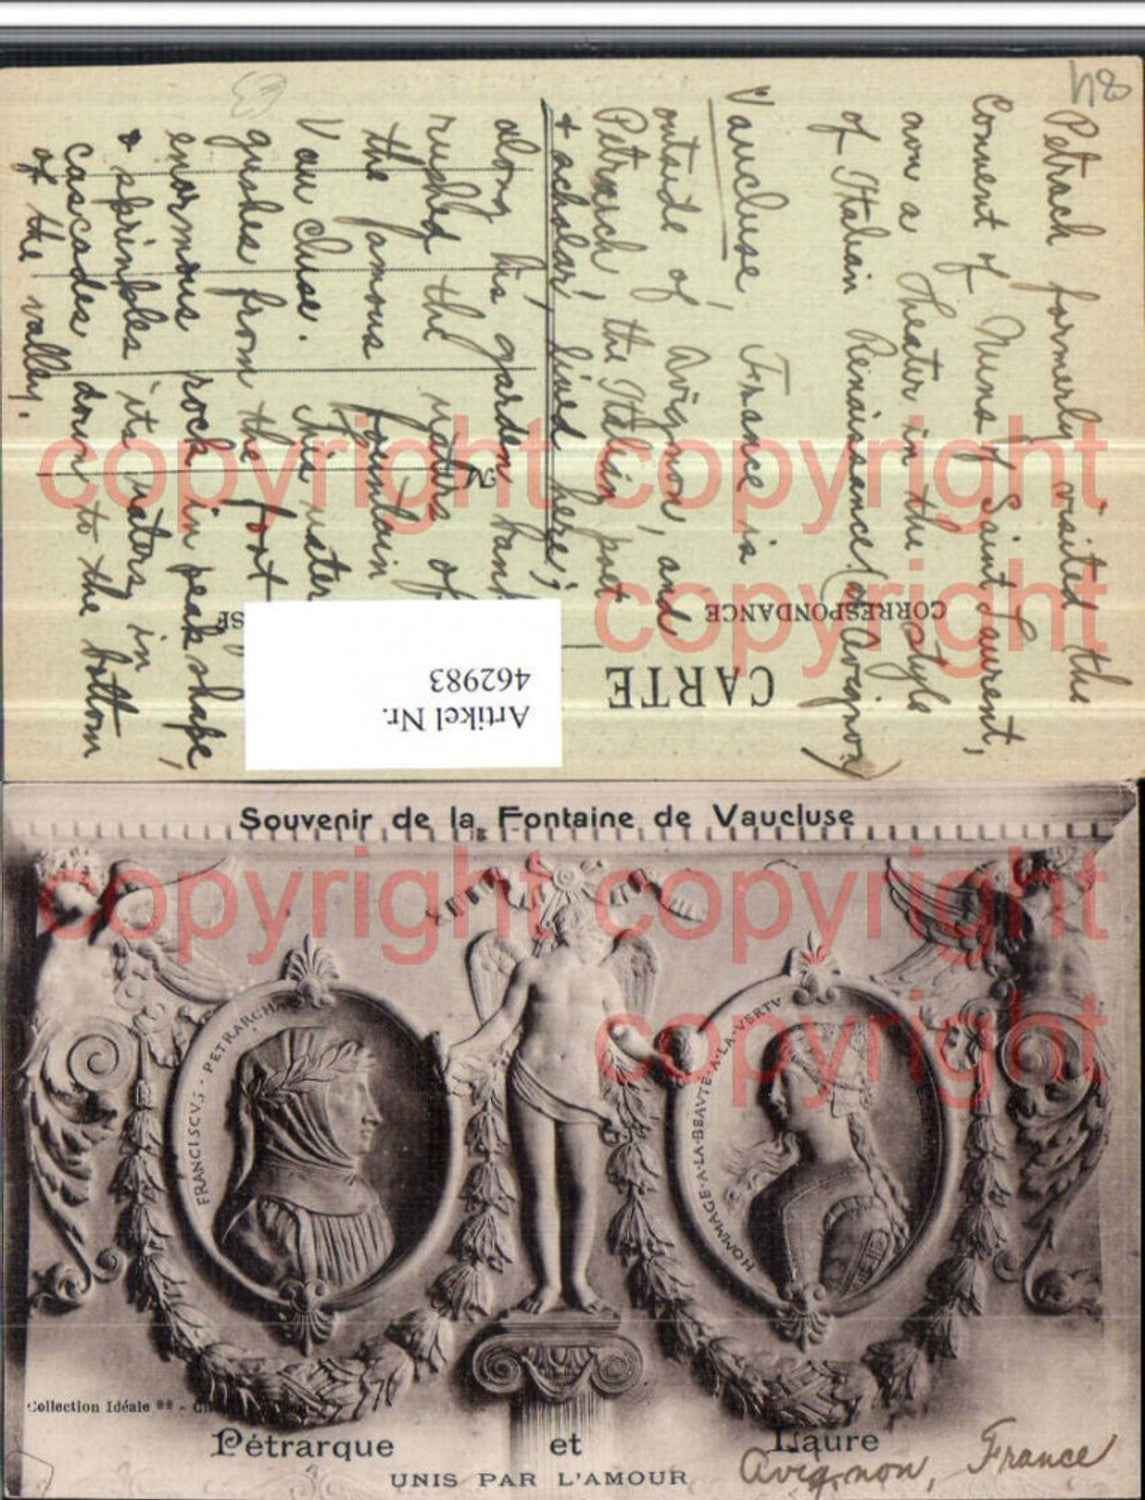 84
Petrach formerly visited the
Convent of Nuns of Saint Laurent,
now a Theater in the style
of Italian Renaissance. (Avignon)
Vaucluse, France is
outside of Avignon, and
Petrarch, the Italian poet
+ scholar, lived here;
along his garden bank
rushed the waters of
the famous fountain
Vaucluse. This water
gushes from the foot
enormous rock in peak shape,
& sprinkles its waters in
cascades down to the bottom
of the valley.
CARTE
CORRESPONDANCE
SE
M
Artikel Nr.
462983
Souvenir de la Fontaine de Vaucluse
FRANCISCVS · PETRARCHA
HOMMAGE · A · LA · BEAVTE · A · LA · VERTV
Collection Idéale **
Pétrarque et Laure
UNIS PAR L'AMOUR
Avignon, France
copyright copyright
copyright
copyright copyright
copyright